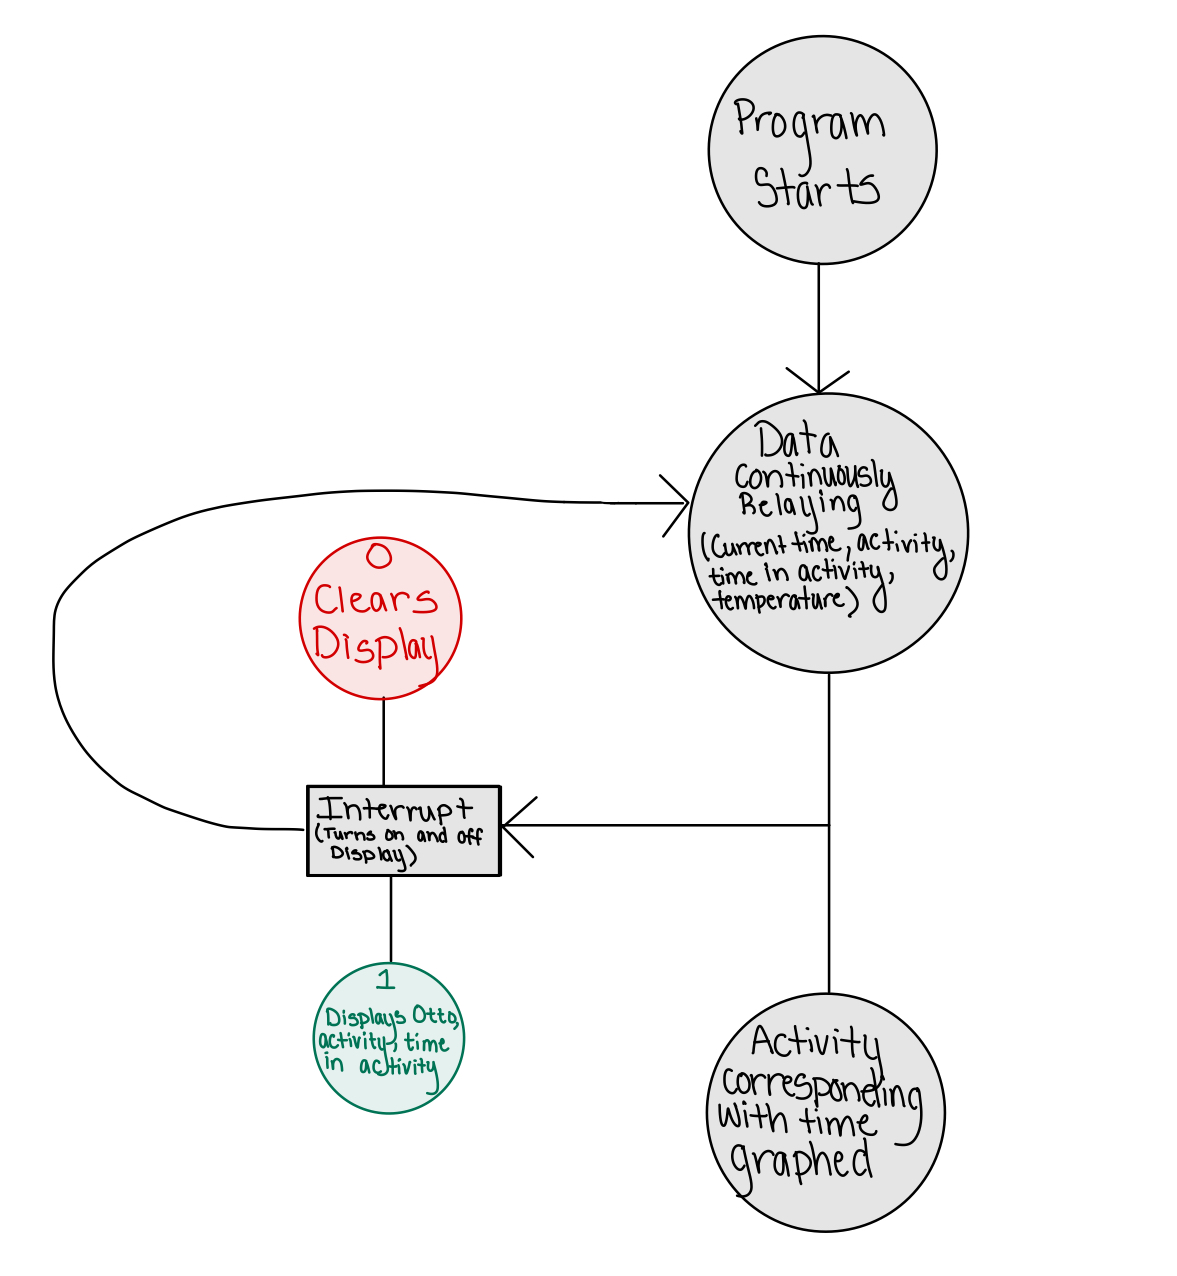 Program
Starts
Data
Continuously
Relaying
(Current time, activity,
time in activity,
temperature)
0
Clears
Display
Interrupt
(Turns on and off
Display)
1
Displays Otto,
activity, time
in activity
Activity
corresponding
with time
graphed